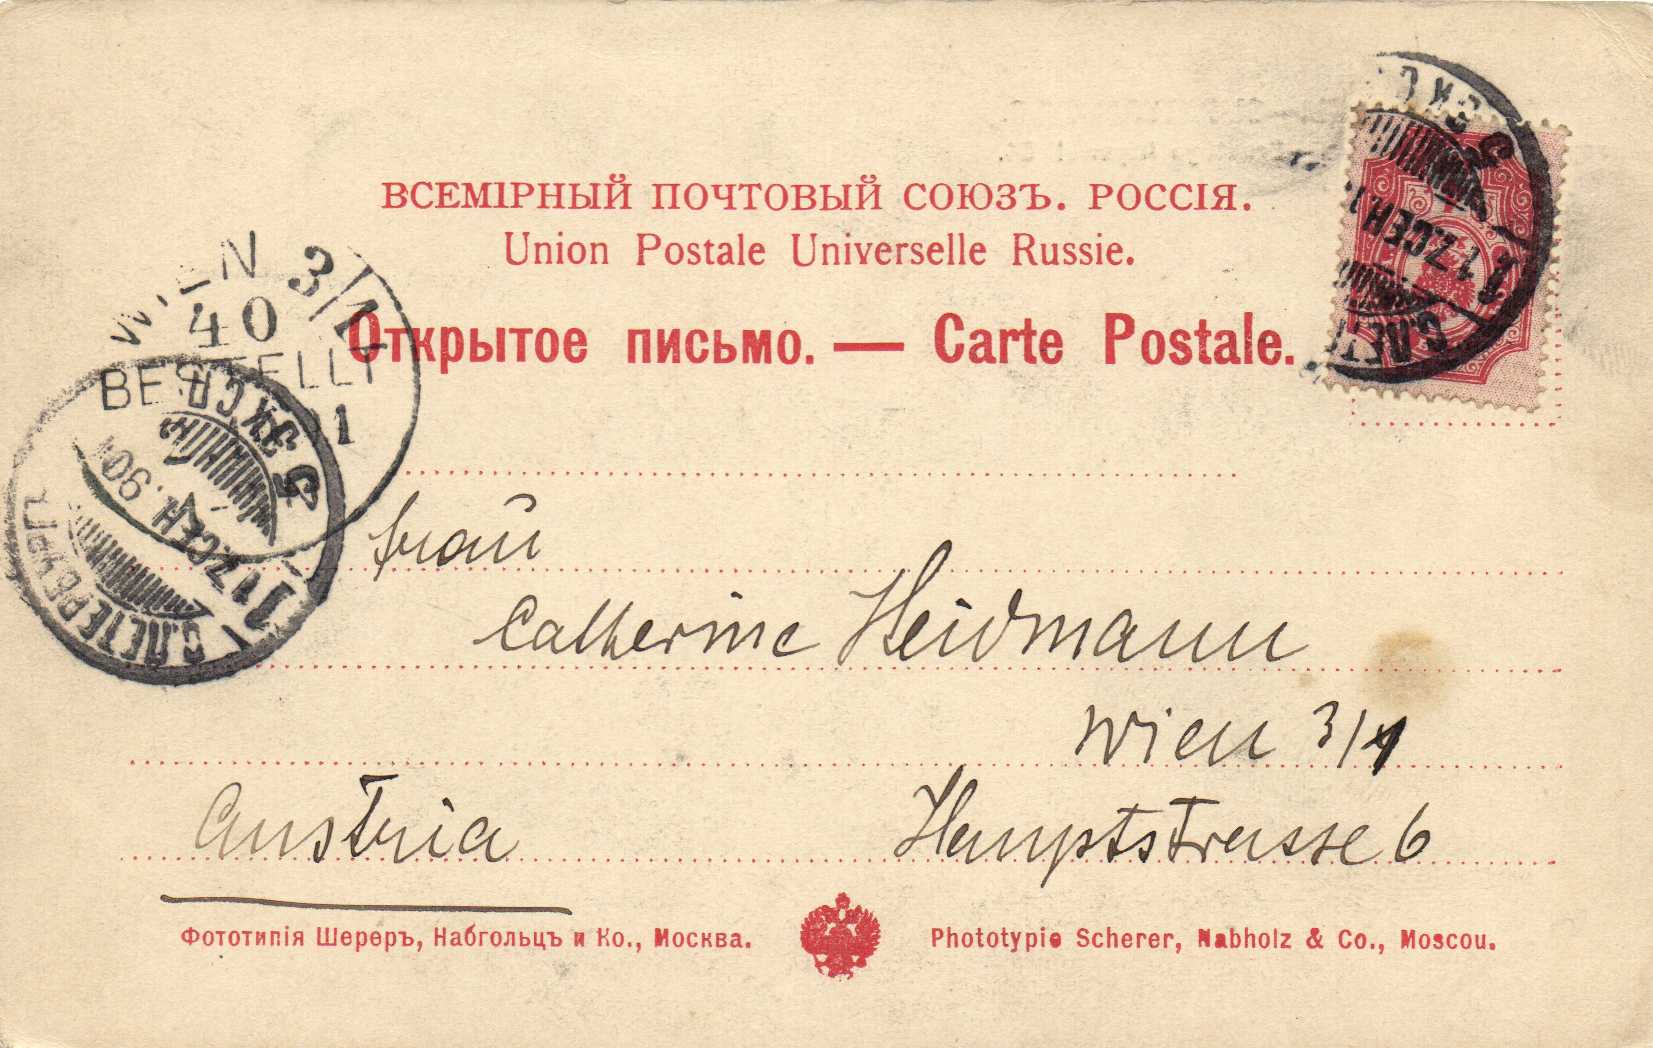 ВСЕМІРНЫЙ ПОЧТОВЫЙ СОЮЗЪ. РОССІЯ.
Union Postale Universelle Russie.
Открытое письмо. — Carte Postale.
WIEN 3/1
40
BESTELLT
С.ПЕТЕРБУРГЪ
17.СЕН.901
5 ЭКСП.
1
17.СЕН.1
С.ПЕТ
Frau
Catherine Heidmann
Wien 3/1
Austria
Hauptstrasse 6
Фототипія Шереръ, Набгольцъ и Ко., Москва.
Phototypie Scherer, Nabholz & Co., Moscou.